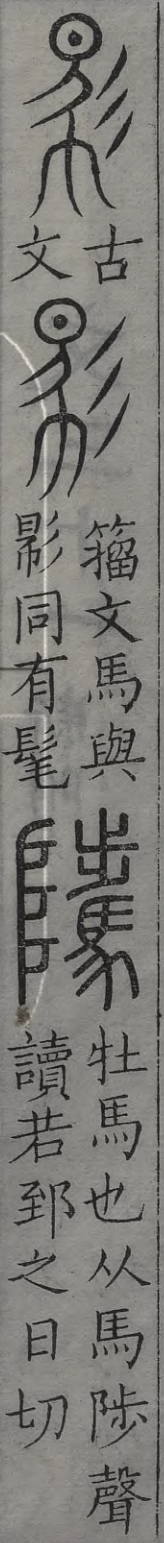 𢒠
古
文
𢒠
籕文馬與
𢒠同有髦
騭
牡馬也从馬陟聲
讀若郅之日切